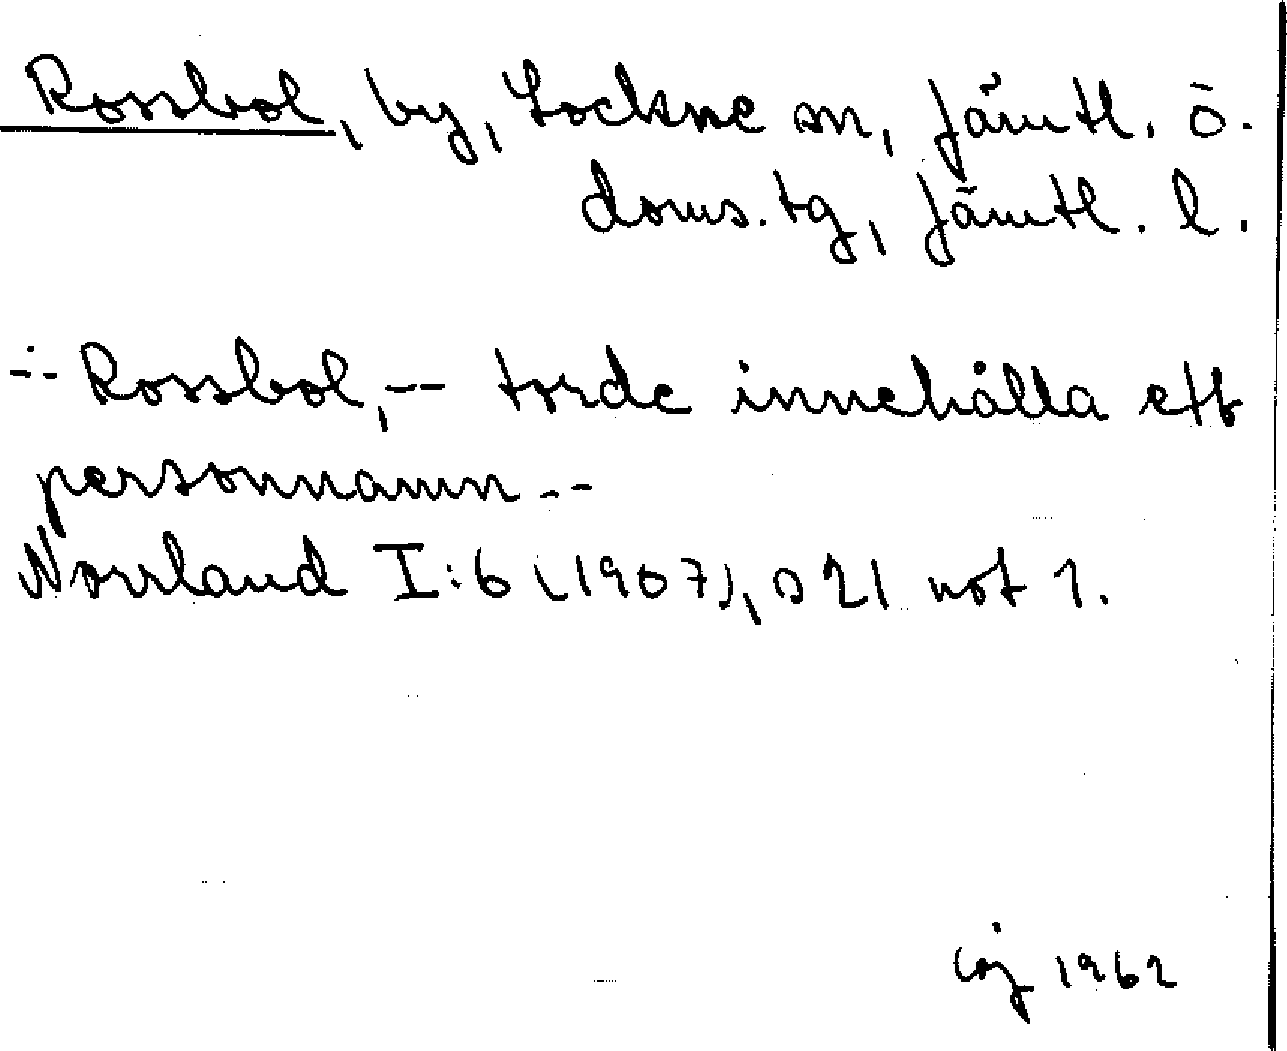 Rossbol, by, Lockne sn, Jämtl. ö.
doms. tg, Jämtl. l.
-:- Rossbol, -- torde innehålla ett
personnamn --
Norrland I:6 (1907), s 21 not 1.
1962